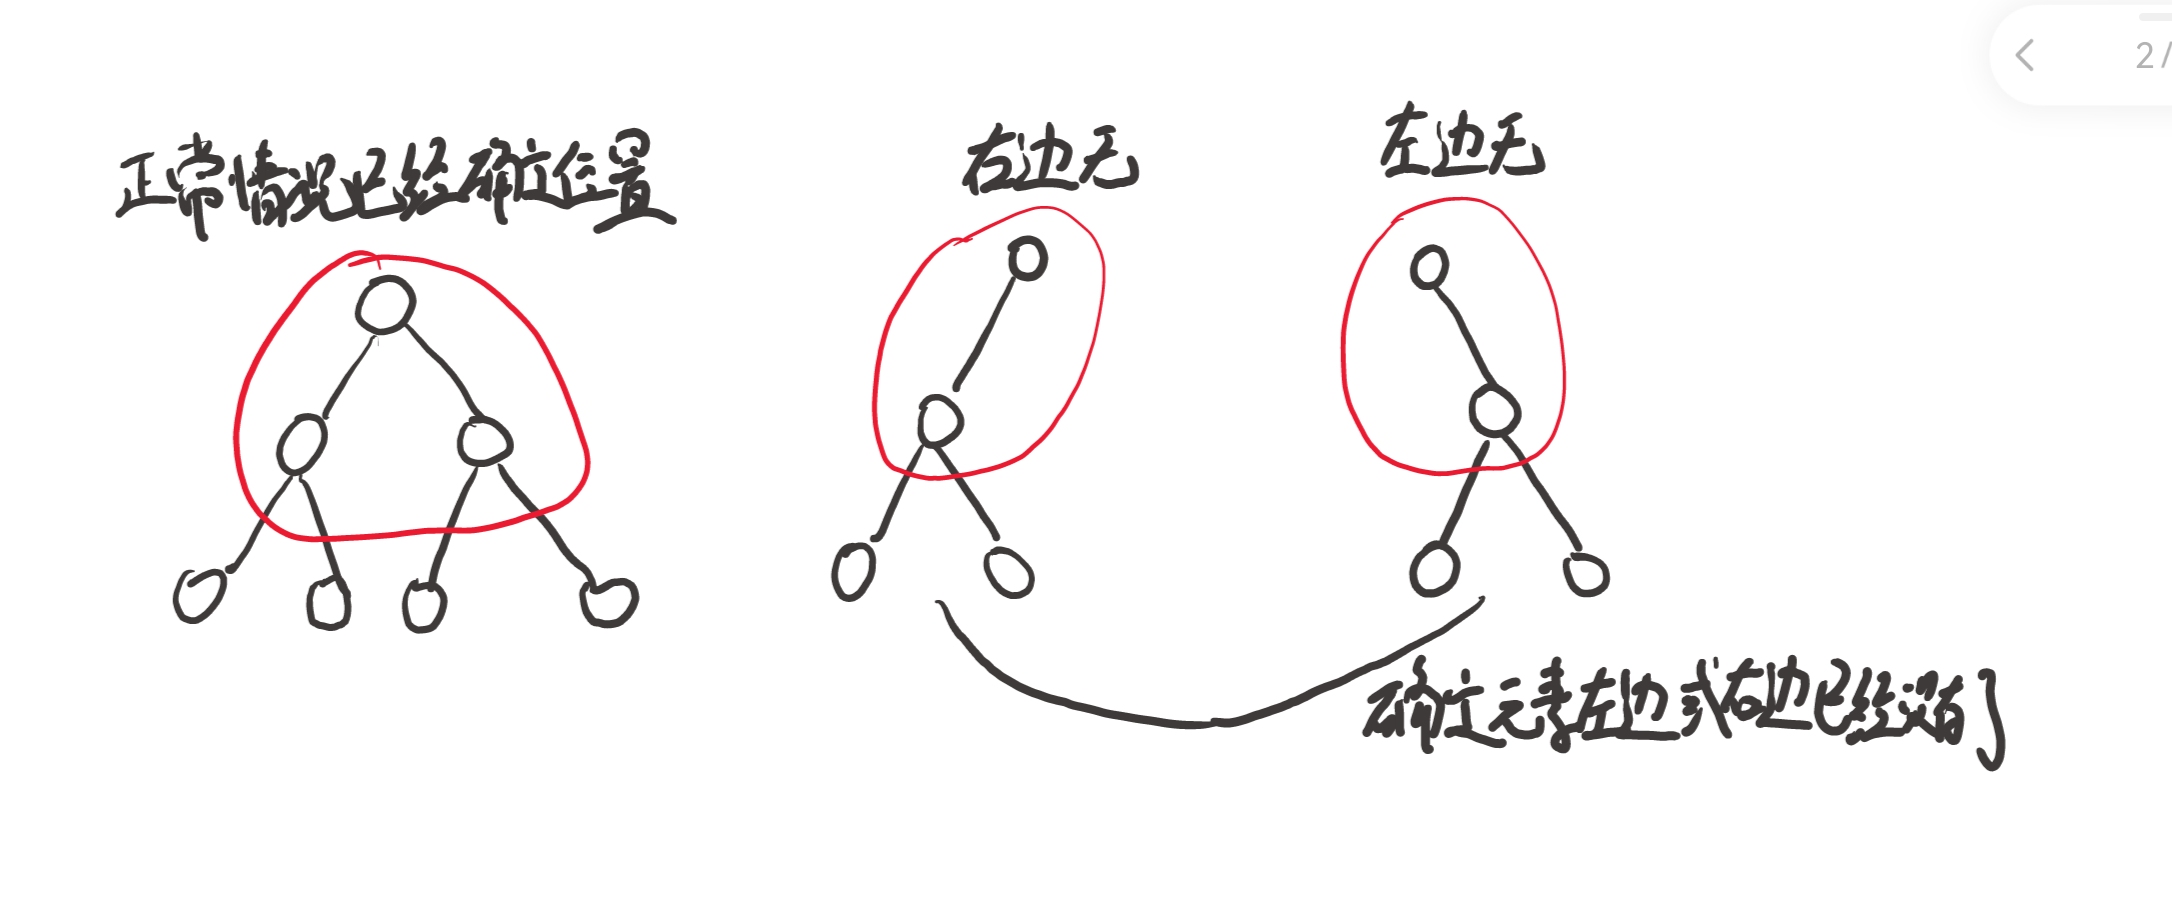 2/
正常情况已经确定位置
右边无
左边无
确定元素左边或右边已经没有了